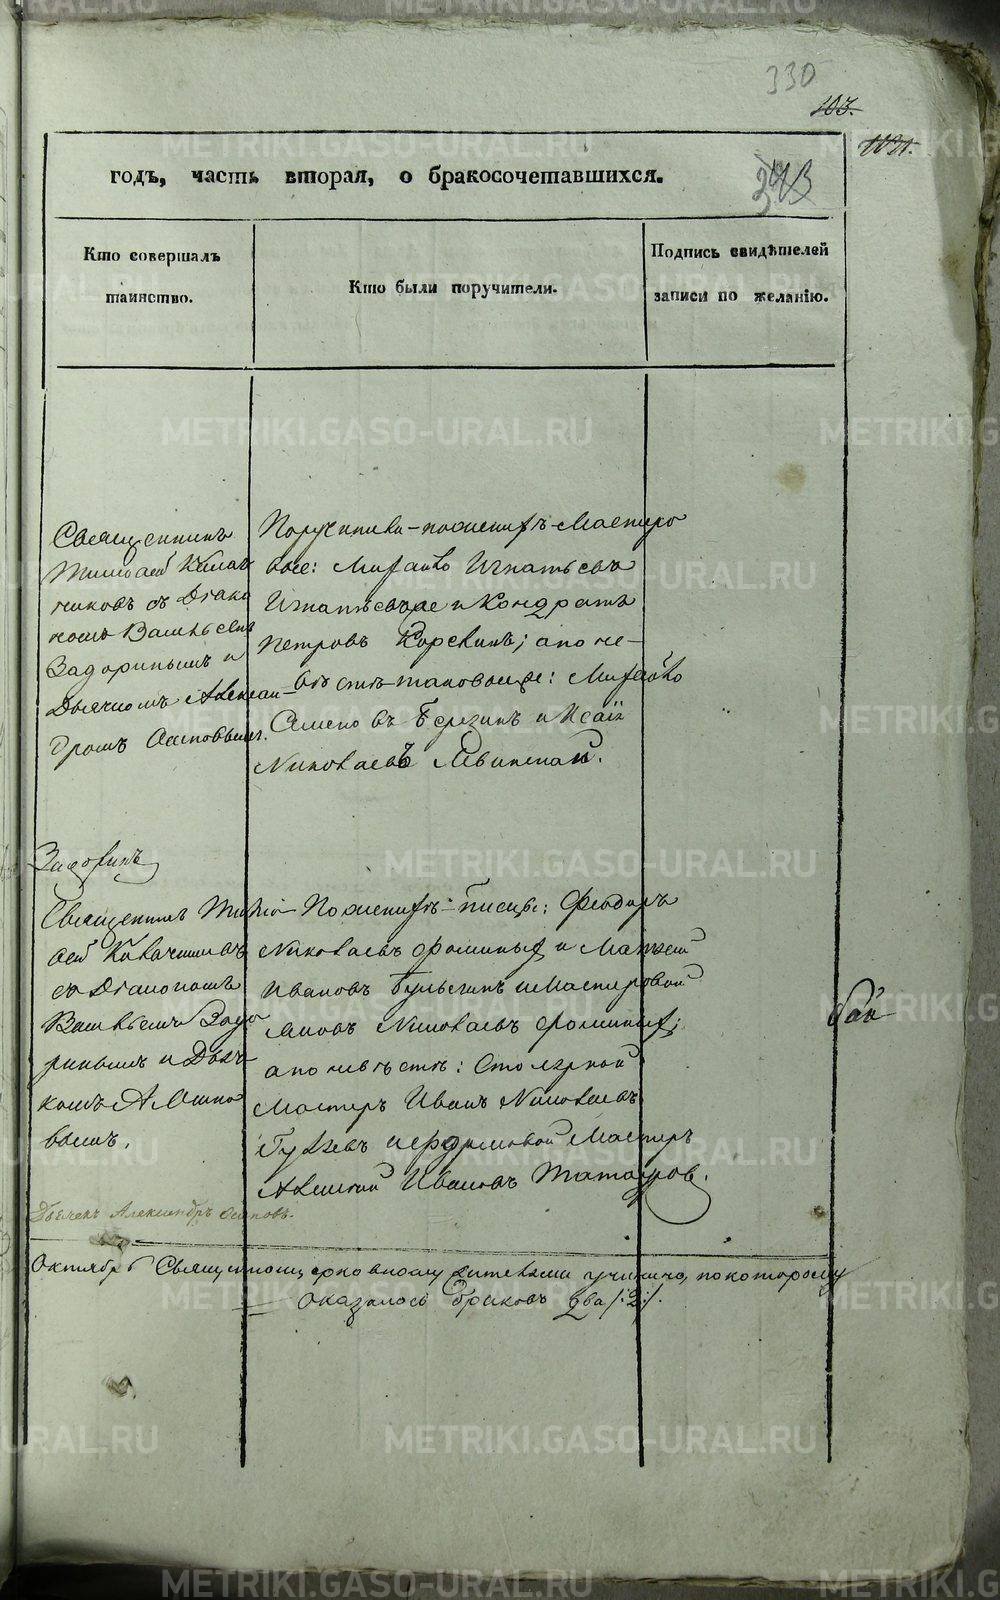 330
103.
1021.
годъ, часть вторая, о бракосочетавшихся.
343
Кто совершалъ
таинство.
Кто были поручители.
Подпись свидѣтелей
записи по желанію.
Священникъ
Тимоѳей Калач
никовъ съ Діако
номъ Васильемъ
Задоринымъ и
Дьячкомъ Алексан-
дромъ Осиповымъ.
Поручители по женихѣ Мастеро
вые: Михайло Игнатьевъ
Игнатьевъ же и Кондратъ
Петровъ Корекинъ; а по не-
вѣстѣ таковые же: Михайло
Семеновъ Березинъ и Исаія
Николаевъ
Задоринъ
Священникъ Тимо
ѳей Калачниковъ
съ Діакономъ
Васильемъ Задо
ринымъ и Дьяч-
комъ А. Осипо
вымъ.
По женихѣ писцы: Феодоръ
Николаевъ Фоминыхъ и Матвей
Ивановъ и Мастеровой
Яковъ Николаевъ Фоминыхъ;
а по невѣстѣ: Столярной
Мастеръ Иванъ Николаевъ
Гуляевъ и формовой Мастеръ
Алексей Ивановъ Татауров.
бай
Дьячекъ Александръ Осиповъ.
Октября Священноцерковнослужителями учинено, по которому
оказалось браковъ два /:2:/.
METRIKI.GASO-URAL.RU